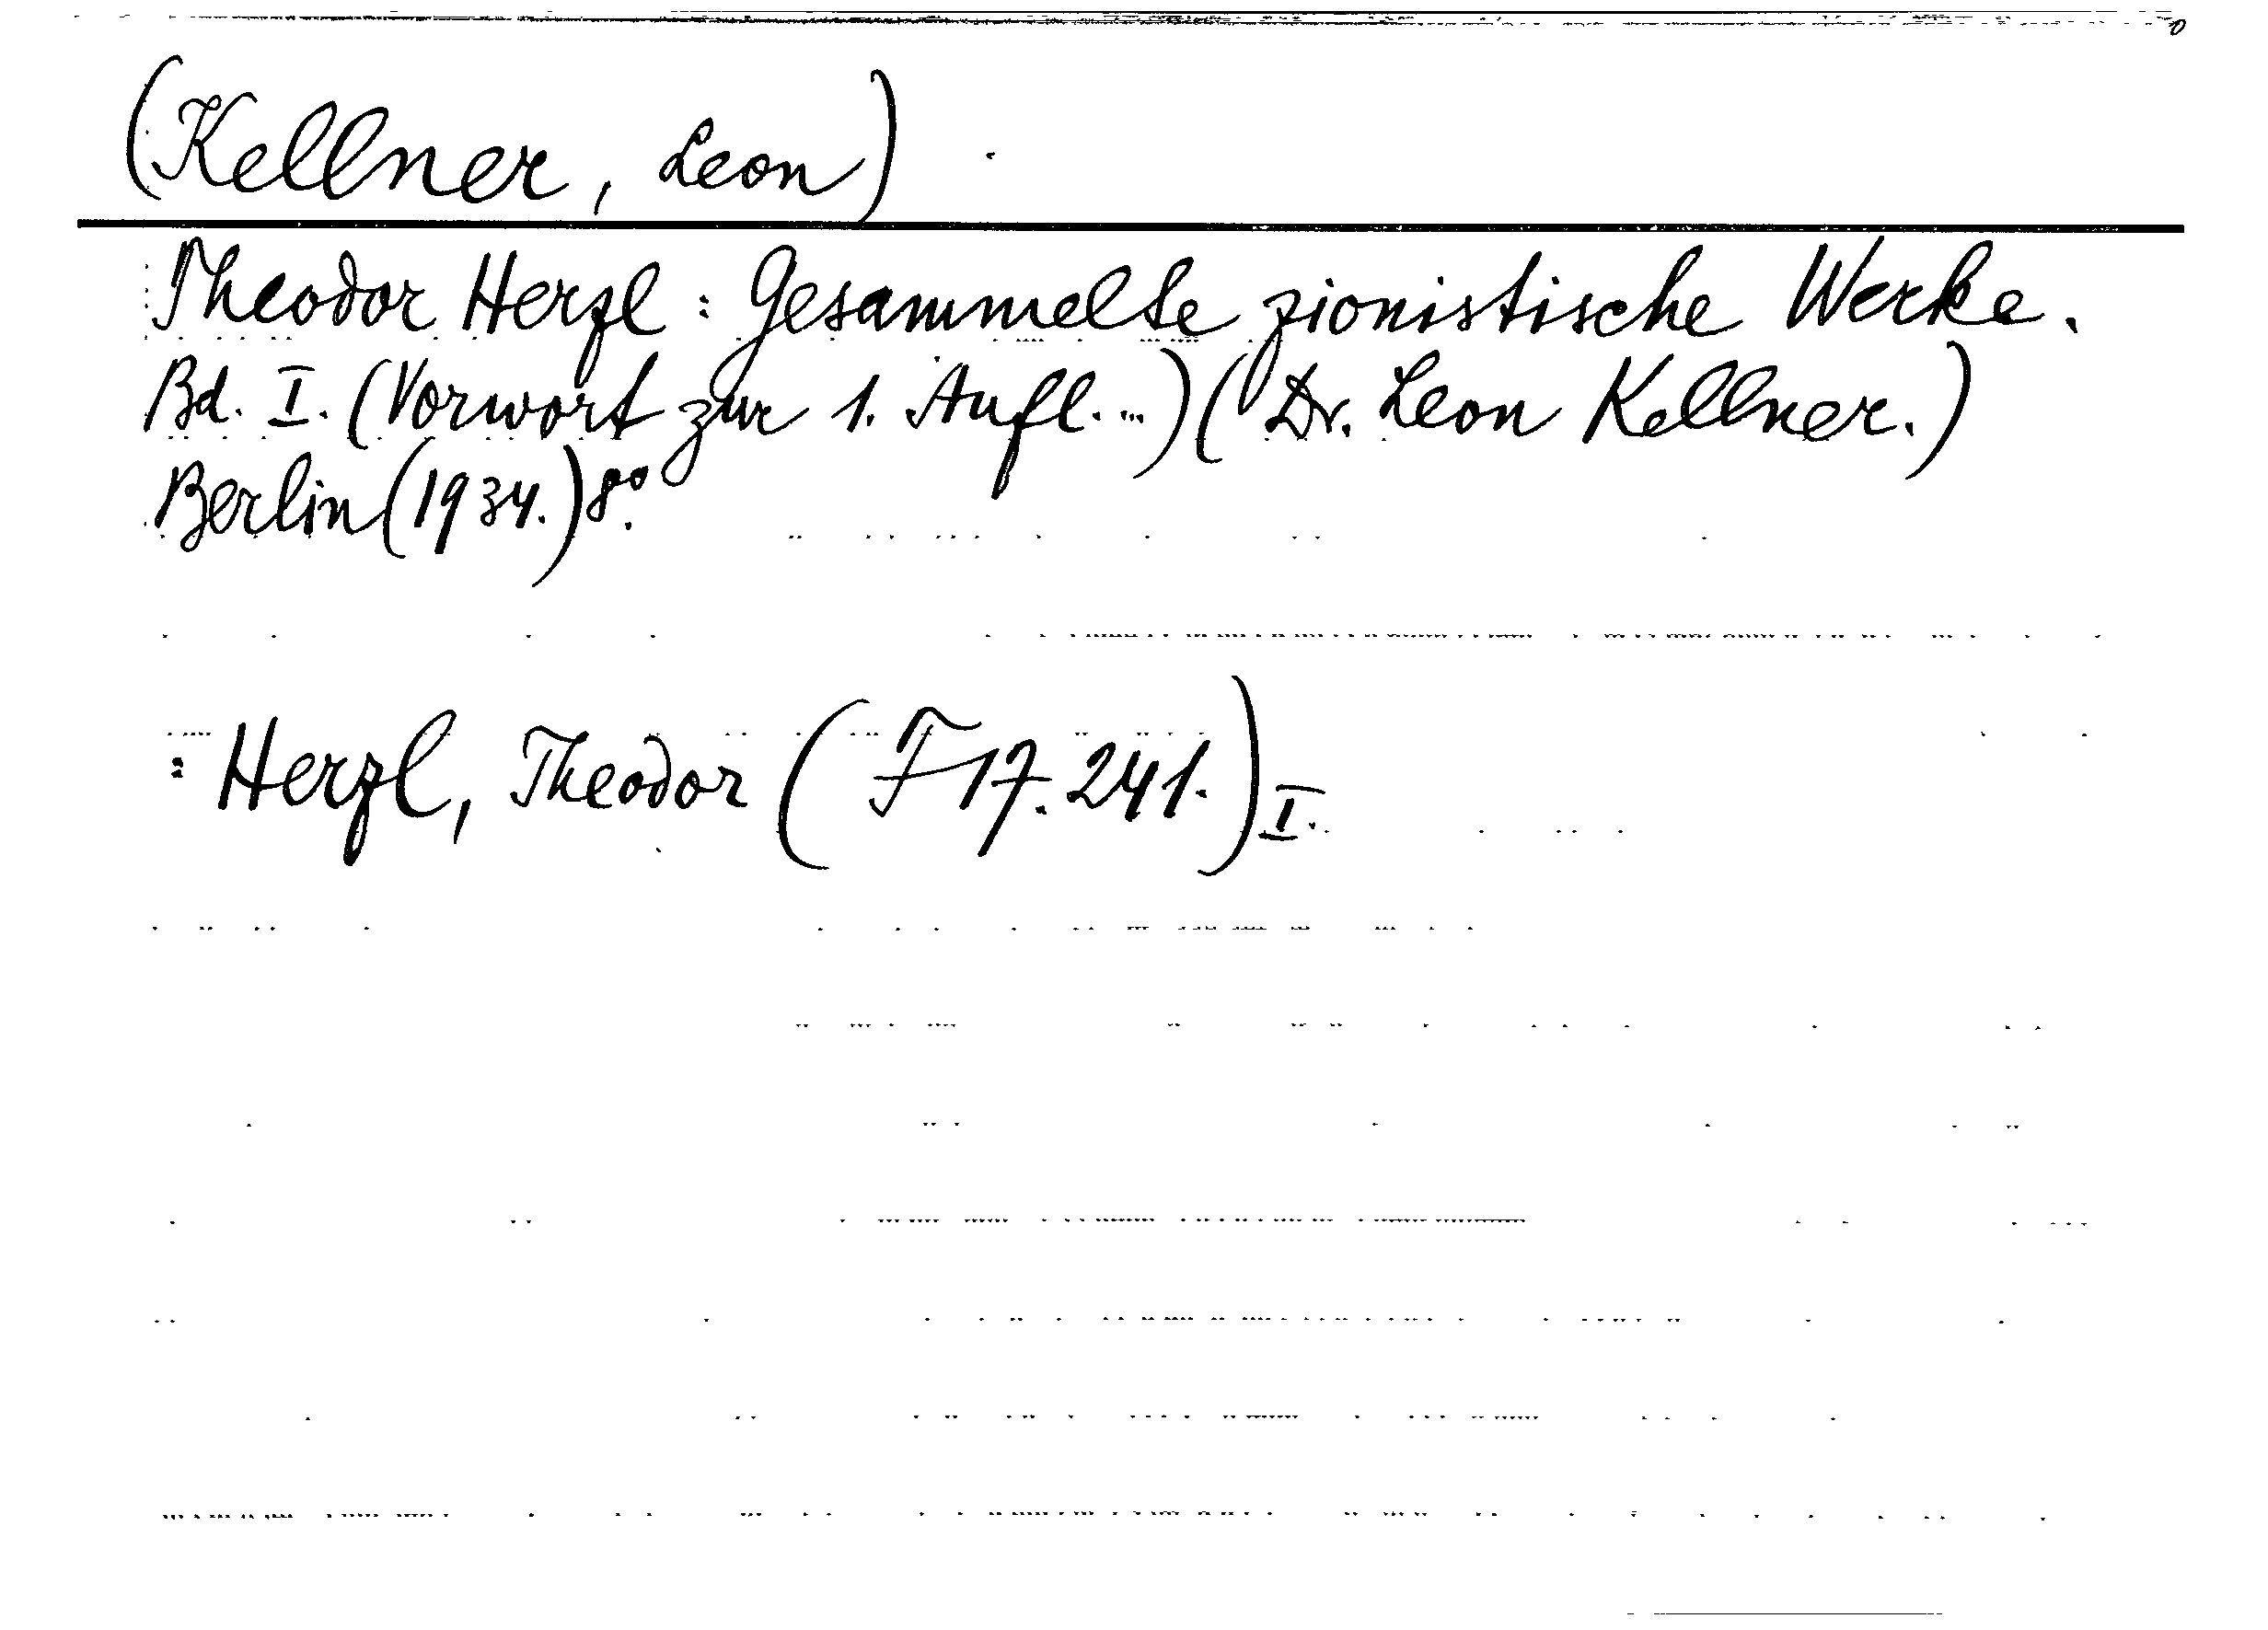 (Kellner, Leon)
Theodor Herzl: Gesammelte zionistische Werke.
Bd. I. (Vorwort zur 1. Aufl. ...) (Dr. Leon Kellner.)
Berlin (1934.) 8°.
: Herzl, Theodor (F 17.241.) I.